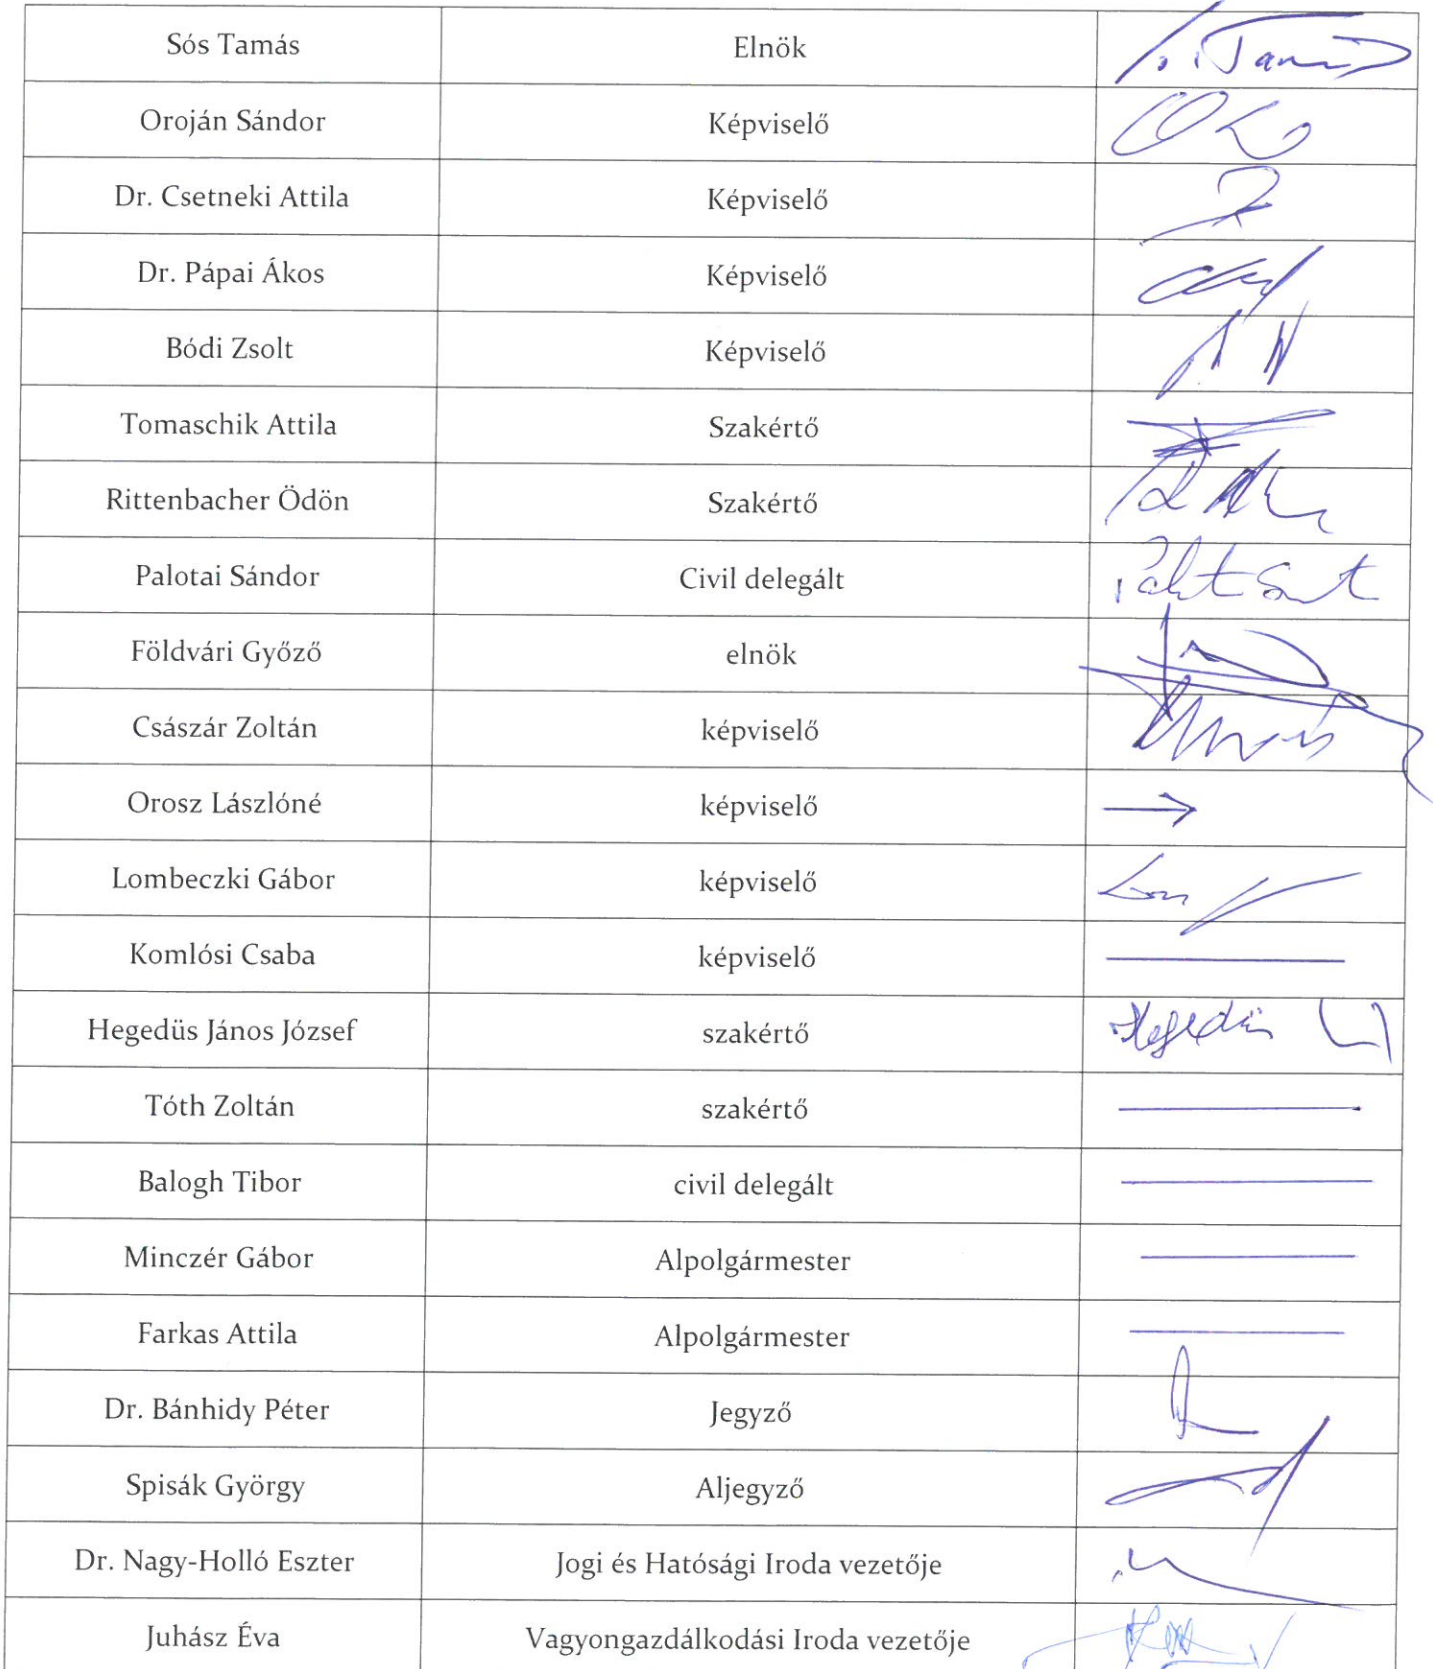 Sós Tamás Elnök
Oroján Sándor Képviselő
Dr. Csetneki Attila Képviselő
Dr. Pápai Ákos Képviselő
Bódi Zsolt Képviselő
Tomaschik Attila Szakértő
Rittenbacher Ödön Szakértő
Palotai Sándor Civil delegált
Földvári Győző elnök
Császár Zoltán képviselő
Orosz Lászlóné képviselő
Lombeczki Gábor képviselő
Komlósi Csaba képviselő
Hegedüs János József szakértő Hegedüs
Tóth Zoltán szakértő
Balogh Tibor civil delegált
Minczér Gábor Alpolgármester
Farkas Attila Alpolgármester
Dr. Bánhidy Péter Jegyző
Spisák György Aljegyző
Dr. Nagy-Holló Eszter Jogi és Hatósági Iroda vezetője
Juhász Éva Vagyongazdálkodási Iroda vezetője